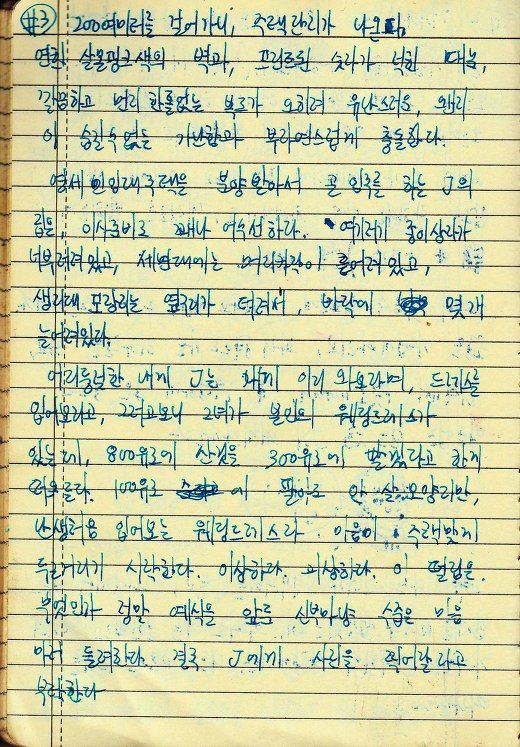 #3 200여미터를 걸어가니, 주택단리가 나온다.
연한 살몬핑크색의 벽과, 프린트된 숫자가 넉힌 대문,
깔끔하고 번리할틈없는 복도가 오히려 유난스러운, 왠지
이 숨길수없는 가난함과 부자연스럽게 충돌한다.
영세민임대주택을 분양받아서 곧 입주를 하는 J의
집은, 이사준비로 꽤나 어수선하다. 여기저기 종이상자가
너부러져있고, 세면대에는 머리카락이 흩어져있고,
생리대 모양리는 옆구리가 터져서, 바닥에 몇개
늘어져있다.
어리둥절한 내게 J는 함께 이리 와보라며, 드레스를
입어보라고, 그러고보니 그녀가 본인의 웨딩드레스가
있는데, 800유로에 산것을 300유로에 팔겠다고 한게
떠오른다. 100유로 에 팔아도 안 살 모양리만,
난생처음 입어보는 웨딩드레스라 마음이 주책맞게
두근거리기 시작한다. 이상하다 괴상하다. 이 떨림은.
무엇인가 정말 예식을 앞둔 신부마냥 수줍은 마음
마저 들려한다. 결국 J에게 사진을 찍어달라고
부탁한다